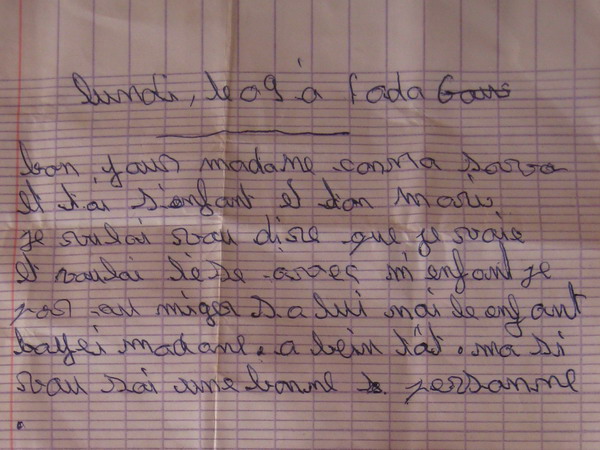 lundi, le 09 à fada Gour
bon jour madame comma sava
et ta s'enfant et ton mari
je voulai vou dire que je
et voulai avec m'enfant je
au salui mai le enfant
bayei madame. a bein tât. ma si
vou sai une bonne personne
.